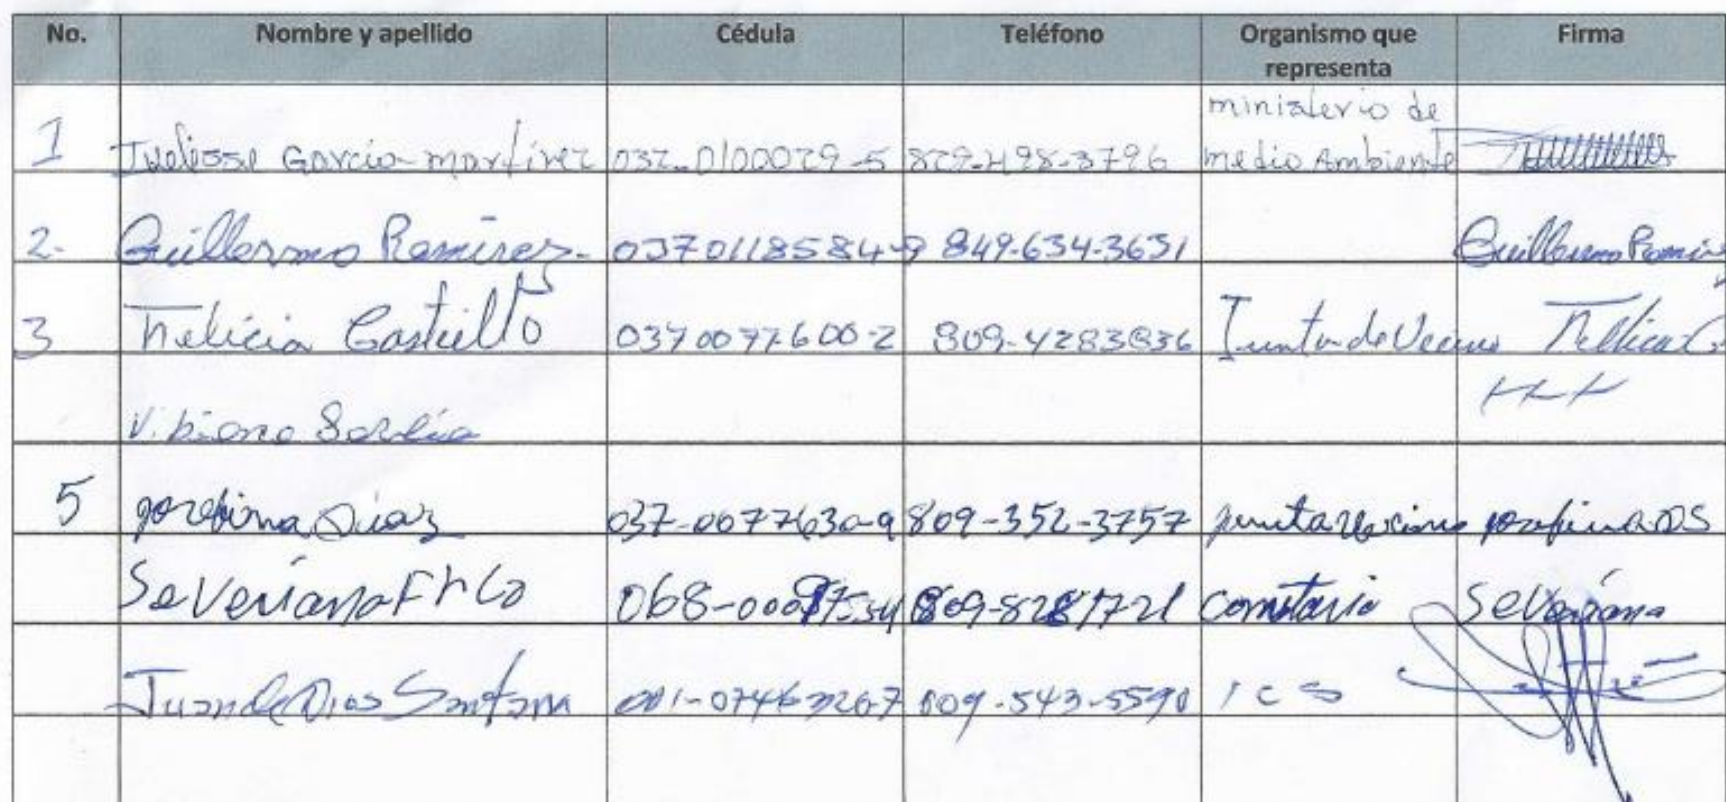 No. Nombre y apellido Cédula Teléfono Organismo que representa Firma
1 García martínez 032-0100029-5 829-498-3796 ministerio de medio Ambiente
2- Guillermo Ramirez- 03701185584-9 849-634-3631 Guillermo Ramire
3 Felicia Castillo 0370077600-2 809-4283836 Junta de Vecinos
V. biano
5 josefina Diaz 037-0077630-9 809-352-3757 junta josefina DS
Severiana 068- 809-8281721 Severiana
Juan de Dios Santana 809-543-5590 ICS